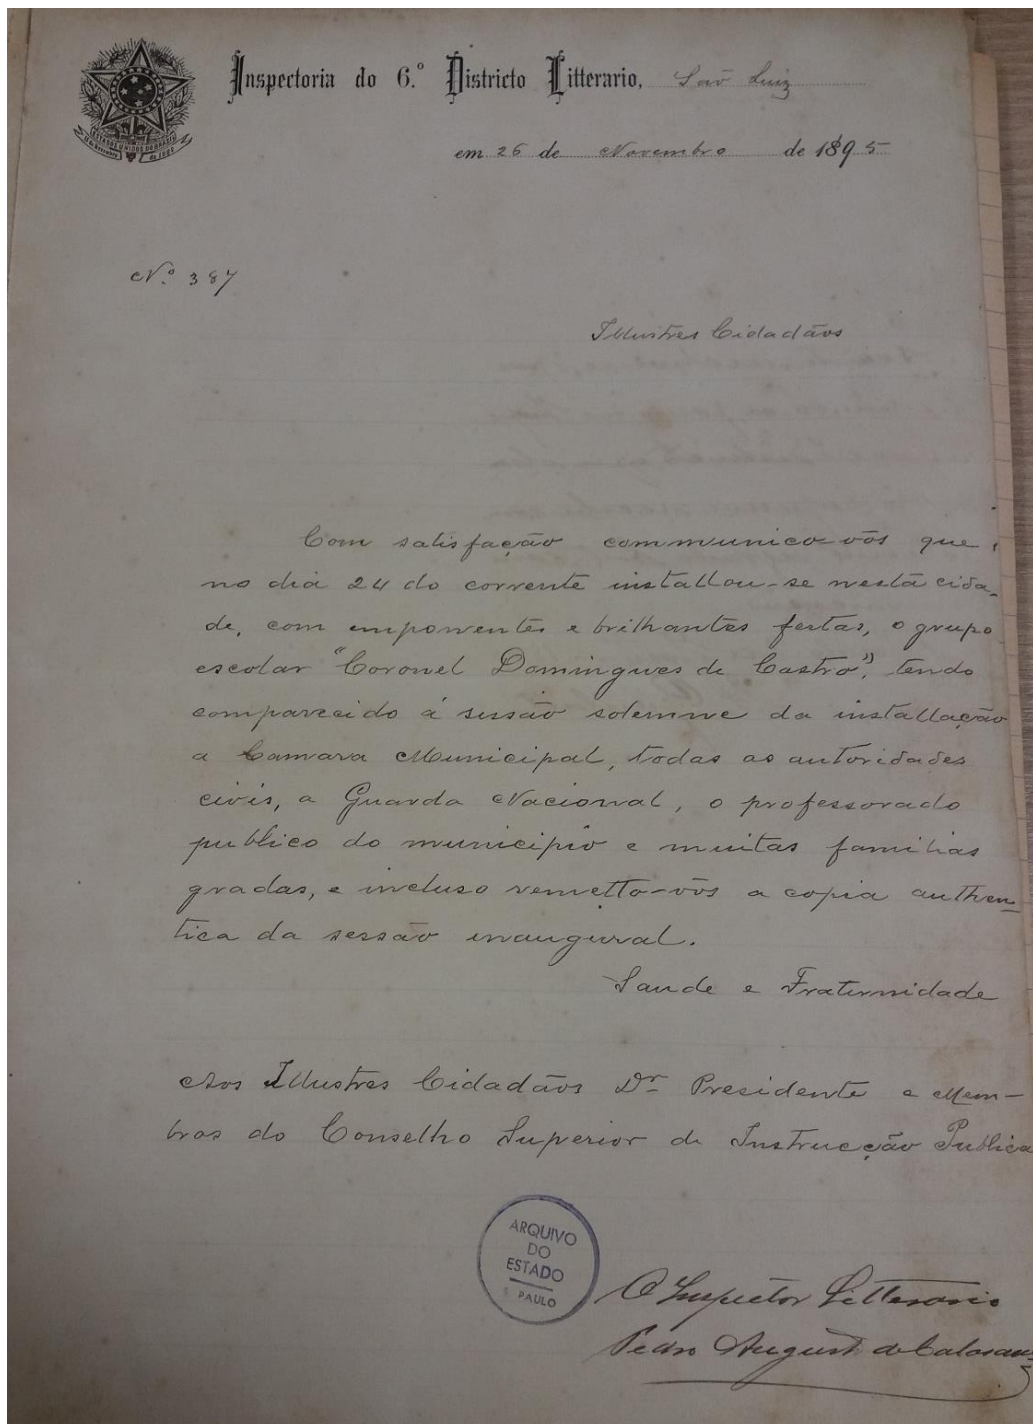 Inspectoria do 6.º Districto Litterario, São Luiz
em 26 de Novembro de 1895
ESTADOS UNIDOS DO BRASIL
15 de Novembro de 1889
N.º 387
Illustres Cidadãos
Com satisfação communico-vós que,
no dia 24 do corrente installou-se nesta cida-
de, com emponentes e brilhantes festas, o grupo
escolar "Coronel Domingues de Castro", tendo
comparecido á sessão solemne da installação
a Camara Municipal, todas as autoridades
civis, a Guarda Nacional, o professorado
publico do municipio e muitas familias
gradas, e incluso remetto-vós a copia authen-
tica da sessão inaugural.
Saude e Fraternidade
Aos Illustres Cidadãos Dr. Presidente e Mem-
bros do Conselho Superior de Instrucção Publica
ARQUIVO
DO
ESTADO
S. PAULO
O Inspector Litterario
Pedro August de Calasans